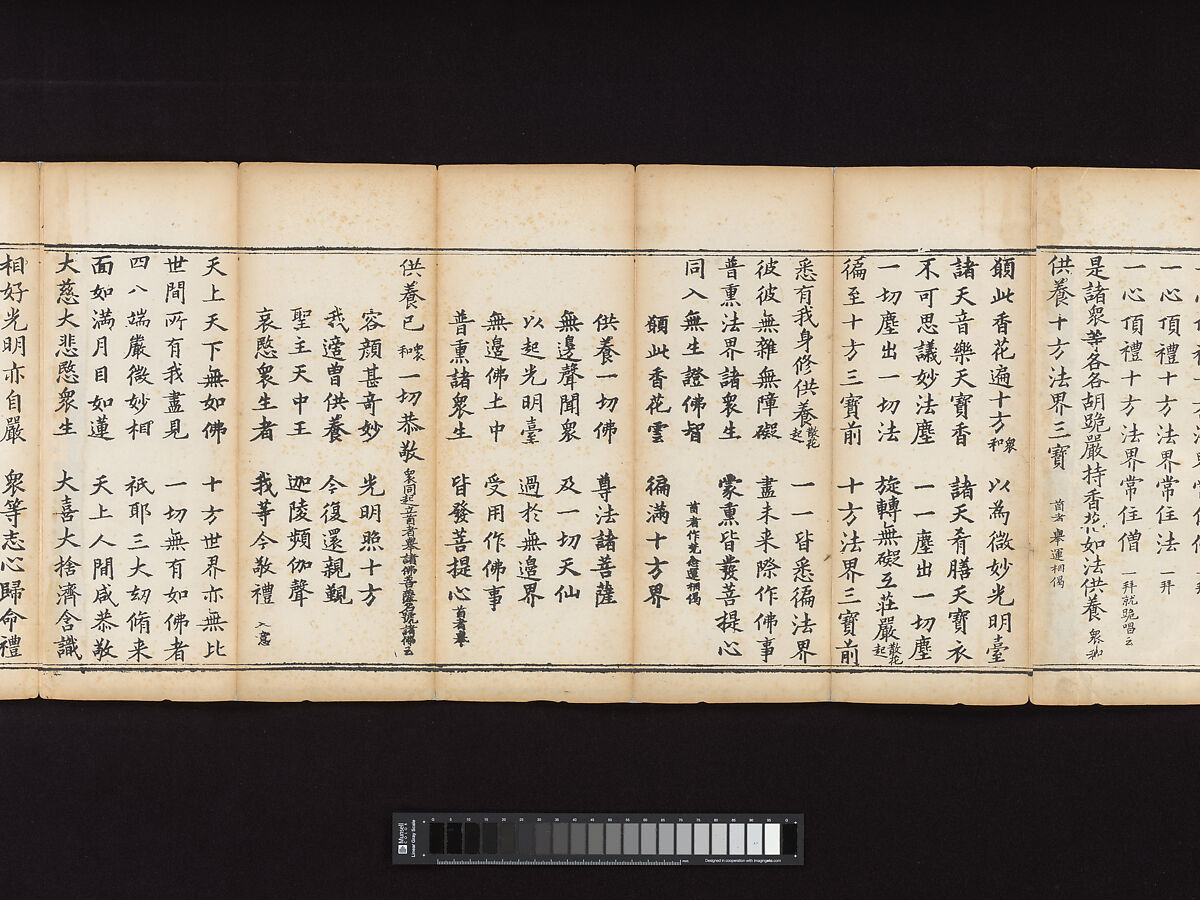 一心頂禮十方法界常住法 一拜
一心頂禮十方法界常住僧 一拜就跪唱云
是諸衆等各各胡跪嚴持香花如法供養 衆和
供養十方法界三寶 首者舉運想偈
願此香花遍十方 衆和 以為微妙光明臺
諸天音樂天寶香 諸天肴膳天寶衣
不可思議妙法塵 一一塵出一切塵
一切塵出一切法 旋轉無礙互莊嚴 散花起
徧至十方三寶前 十方法界三寶前
悉有我身修供養 散花起 一一皆悉徧法界
彼彼無雜無障礙 盡未來際作佛事
普熏法界諸衆生 蒙熏皆發菩提心
同入無生證佛智 首者作梵念運想偈
願此香花雲 徧滿十方界
供養一切佛 尊法諸菩薩
無邊聲聞衆 及一切天仙
以起光明臺 過於無邊界
無邊佛土中 受用作佛事
普熏諸衆生 皆發菩提心 首者舉
供養已 衆和 一切恭敬 衆同起立首者舉諸佛菩薩名號諸佛云
容顔甚奇妙 光明照十方
我適曾供養 今復還親覲
聖主天中王 迦陵頻伽聲
哀愍衆生者 我等今敬禮 入意
天上天下無如佛 十方世界亦無比
世間所有我盡見 一切無有如佛者
四八端嚴微妙相 祇耶三大刼脩来
面如滿月目如蓮 天上人間咸恭敬
大慈大悲愍衆生 大喜大捨濟含識
相好光明亦自嚴 衆等志心歸命禮
Munsell
COLOR
Linear Gray Scale
0 5 10 15 20 25 30 35 40 45 50 55 60 65 70 75 80 85 90 95
mm
Designed in cooperation with imagingetc.com